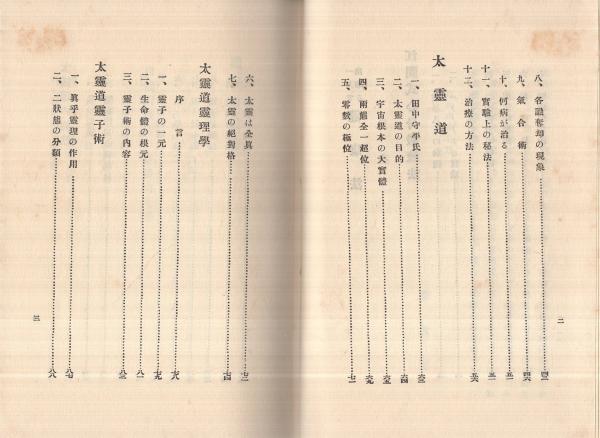 八、各識奪却の現象
九、氣合術
十、何病が治る
十一、實驗上の秘法
十二、治療の方法
太靈道
一、田中守平氏
二、太靈道の目的 六四
三、宇宙根本の大實體
四、兩態全一超位 六九
五、零數の極位 七一
二
六、太靈は全眞
七、太靈の絕對格 七四
太靈道靈理學
序言 七八
一、靈子の一元 七九
二、生命體の根元 八一
三、靈子術の內容 八三
太靈道靈子術
一、眞乎靈理の作用 八七
二、二狀態の分類 八八
三